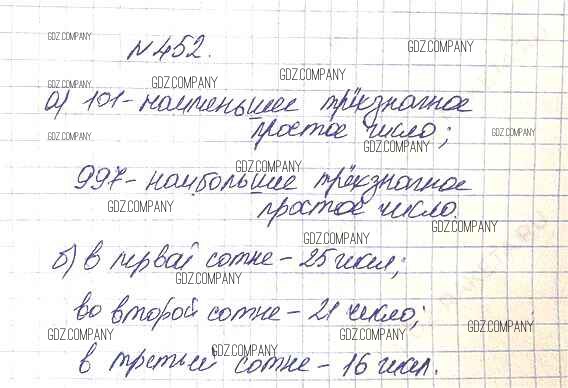 GDZ.COMPANY
№452.
GDZ.COMPANY
GDZ.COMPANY
GDZ.COMPANY
GDZ.COMPANY
а) 101 - наименьшее трёхзначное
простое число;
GDZ.COMPANY
GDZ.COMPANY
GDZ.COMPANY
GDZ.COMPANY
997 - наибольшее трёхзначное
GDZ.COMPANY
простое число.
GDZ.COMPANY
б) в первой сотне - 25 чисел;
GDZ.COMPANY
во второй сотне - 21 число;
GDZ.COMPANY
GDZ.COMPANY
GDZ.COMPANY
GDZ.COMPANY
в третьей сотне - 16 чисел.